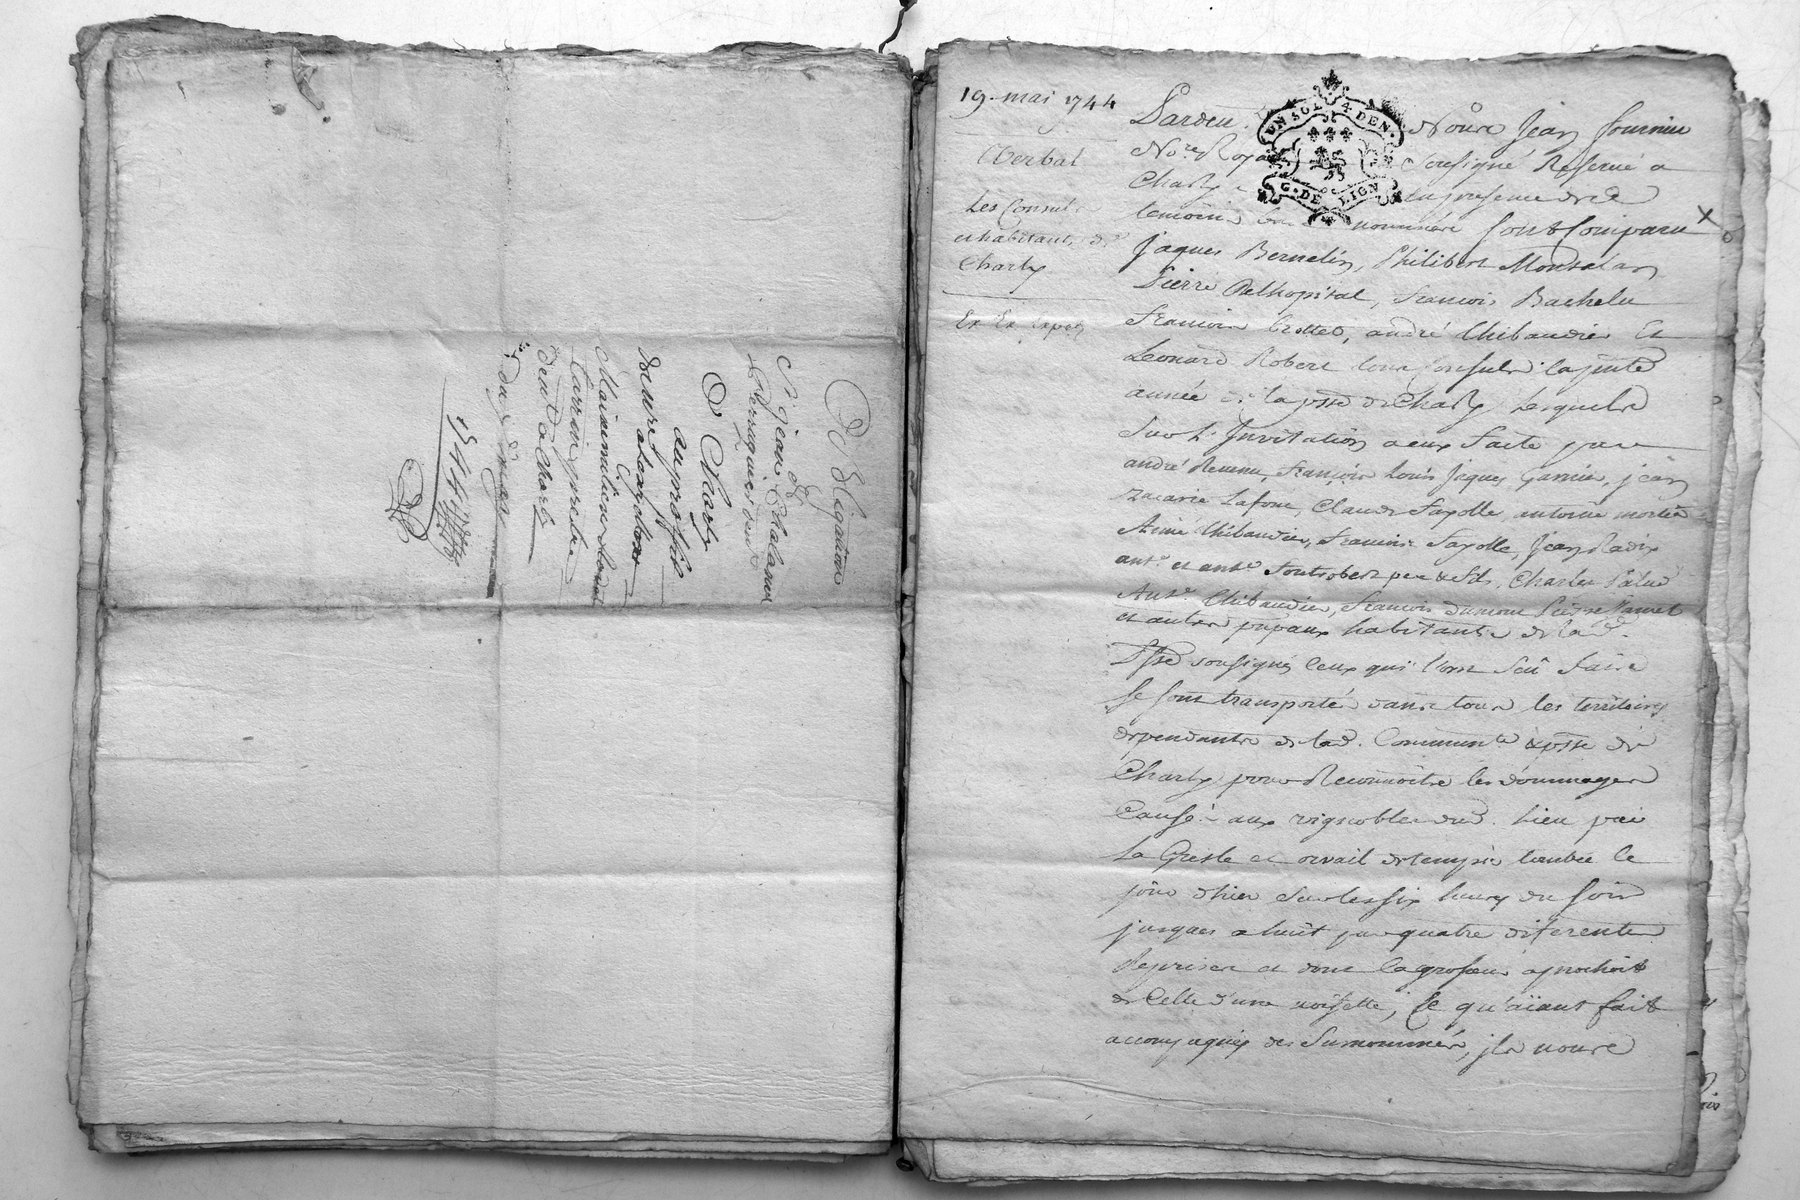 Obligation
Sr jean Chaland
Verraquier dud
a Charly
au proffit
de mre
Maximilien
prestre
dem.t a Charly
du
1744
19 mai 1744
Verbal
Les Consuls
et habitants de
Charly
UN SOL 4 DEN.
G. DE LION
Pardevt Nore Jean fournier
Nore Royal sousigné Reservé a
Charly en presence des
temoins nommés sont Comparu
jaques Bernelin, Philibert Montalan
Pierre Delhopital, francois Bachelu
francois Crottet, andré thibaudier Et
Leonard Robert tous Consuls la pnte
année de la psse de Charly Lesquels
sur L'Invitation a eux faite par
andré Revenu, francois Louis jaques Garnier, jean
Zacarie Lafont, Claude fayolle, antoine mortier
Aimé thibaudier, francois fayolle, jean Radix
ant.e et ant.e fontrobert pere & fils, Charles Palud
Ant.e thibaudier, francois dumont Pierre
et autres habitants de lad.
psse sousignés Ceux qui l'ont sceu faire
se sont transportés dans tous les territoires
dependants de lad. Communte & psse de
Charly pour Reconnoitre les dommages
Causés aux vignobles dud. Lieu par
la Gresle et orvail de temps tombée le
jour d'hier sur les six heures du soir
jusques a huit par quatre diferentes
Reprises et dont la grosseur aprochoit
de Celle d'une noisette, Ce qu'aiant fait
accompagnés des surnommés, ils nous